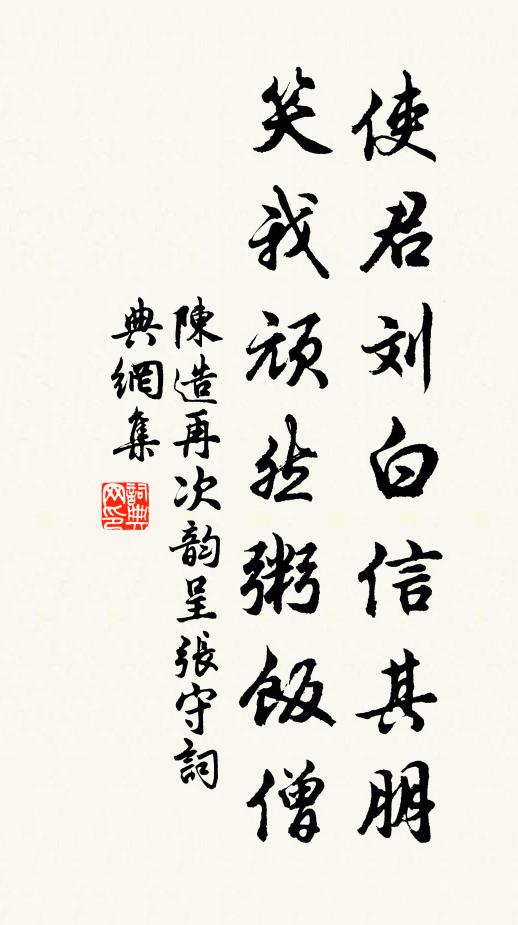 使君刘白信其朋
笑我頑然粥飯僧
陳造再次韵呈張守詞
典網集
詞典
网印